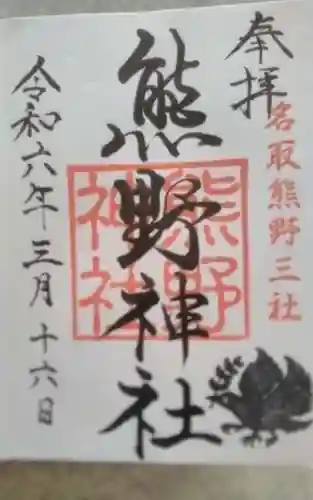 奉拝
名取熊野三社
熊野神社
熊野神社
令和六年三月十六日